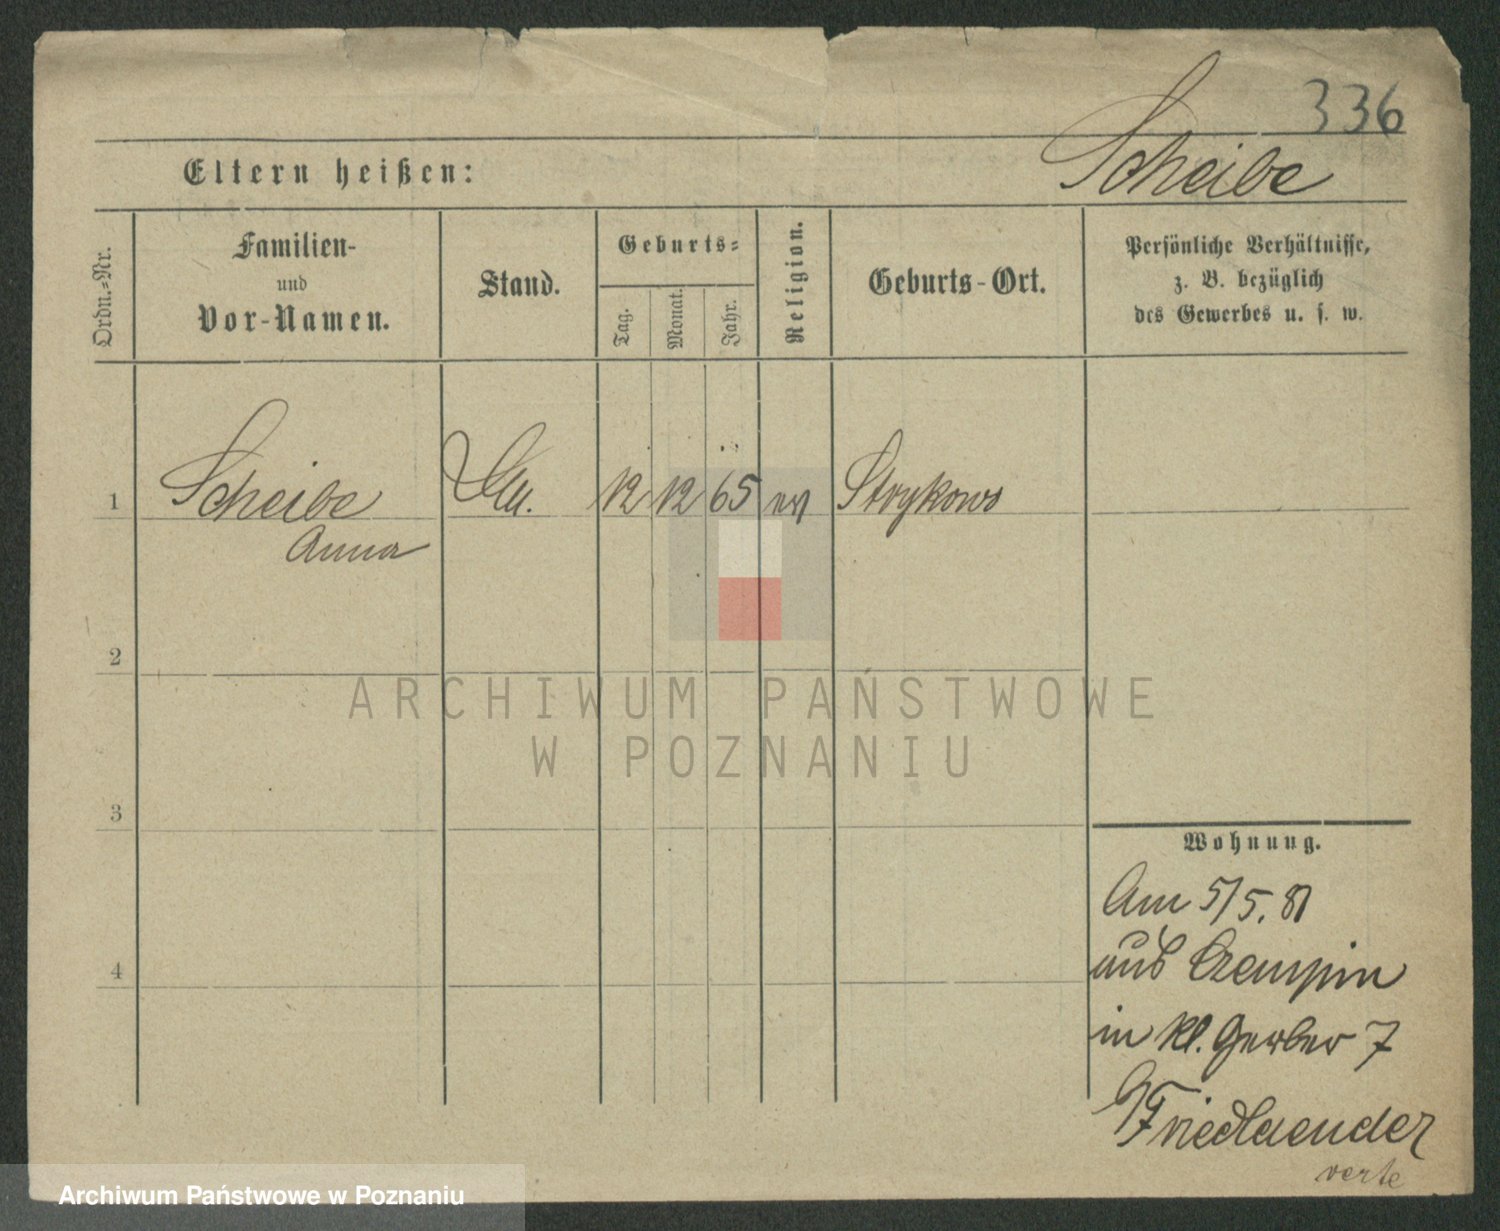 336
Scheibe
Eltern heißen:
Ordn.=Nr.
Familien-
und
Vor-Namen.
Stand.
Geburts=
Tag.
Monat.
Jahr.
Religion.
Geburts-Ort.
Persönliche Verhältnisse,
z. B. bezüglich
des Gewerbes u. s. w.
1 Scheibe 12 12 65 ev Strykowo
Anna
2
3
4
ARCHIWUM PAŃSTWOWE
W POZNANIU
Wohnung.
Am 5/5. 81
aus Czempin
in kl. Gerber 7
Friedlaender
verte
Archiwum Państwowe w Poznaniu